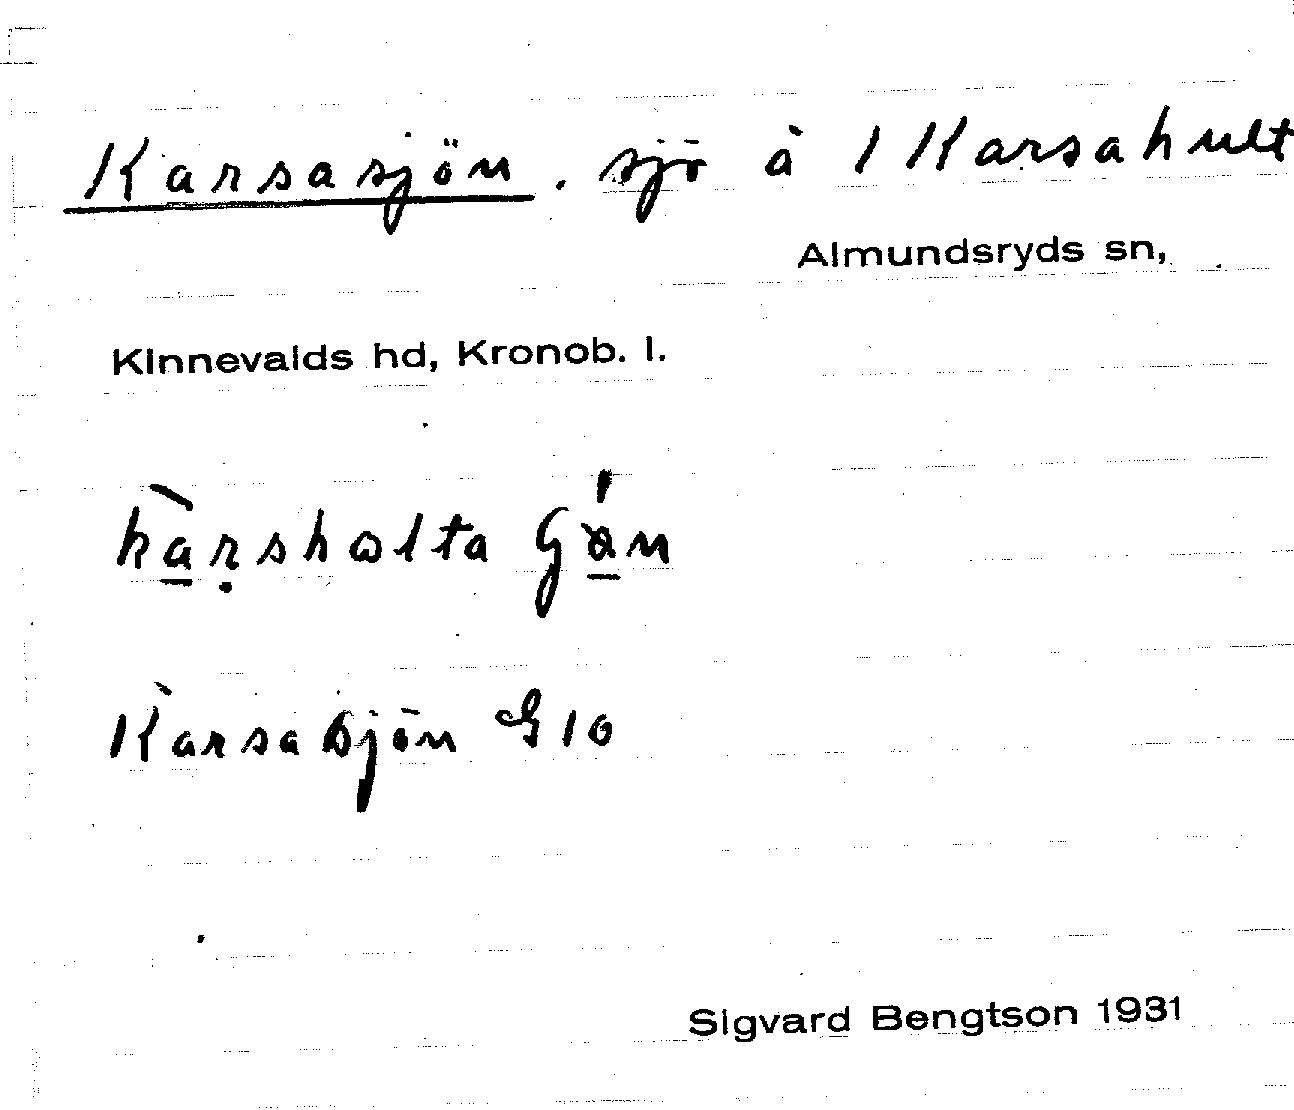 Karsasjön. sjö å 1 Karsahult
Almundsryds sn,
Kinnevalds hd, Kronob. l.
kàrshɷlta Gǿn
Karsasjön G 10
Sigvard Bengtson 1931